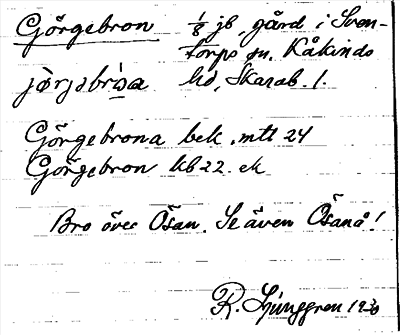 Görgebron 1/8 jb, gård i Sven-
torps sn. Kåkinds
jö̀rjəbròa hd, Skarab. l.
Görgebrona bek. mtl 24
Görgebron kb 22. ek
Bro över Ösan. Se även Ösanå!
R. Ljunggren 1930